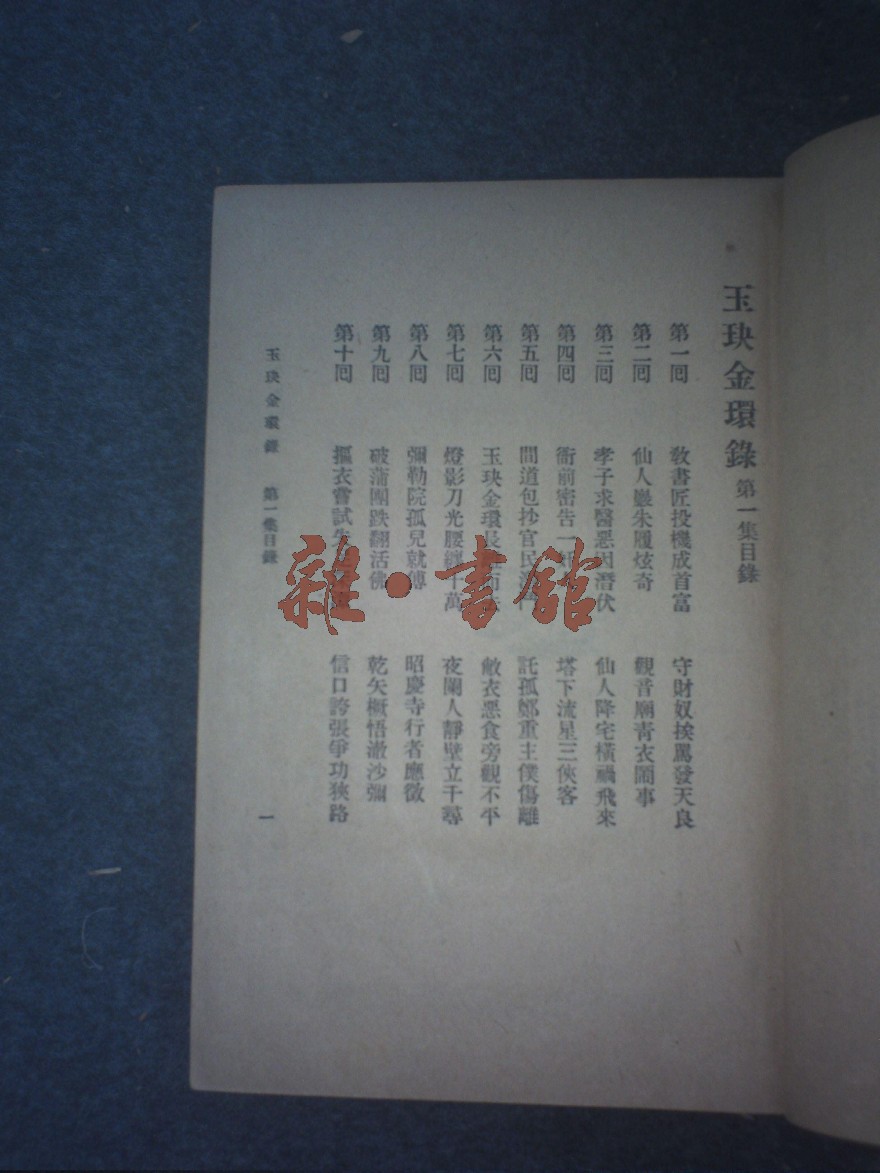 玉玦金環錄 第一集目錄
第一囘 敎書匠投機成首富 守財奴挨罵發天良
第二囘 仙人巖朱履炫奇 觀音廟靑衣鬧事
第三囘 孝子求醫惡因潛伏 仙人降宅橫禍飛來
第四囘 衙前密告一 塔下流星三俠客
第五囘 間道包抄官民 託孤鄭重主僕傷離
第六囘 玉玦金環長 敝衣惡食旁觀不平
第七囘 燈影刀光腰纏十萬 夜闌人靜壁立千尋
第八囘 彌勒院孤兒就傅 昭慶寺行者應徵
第九囘 破蒲團跌翻活佛 乾矢橛悟澈沙彌
第十囘 摳衣嘗試 信口誇張爭功狹路
玉玦金環錄 第一集目錄 一
雜·書館